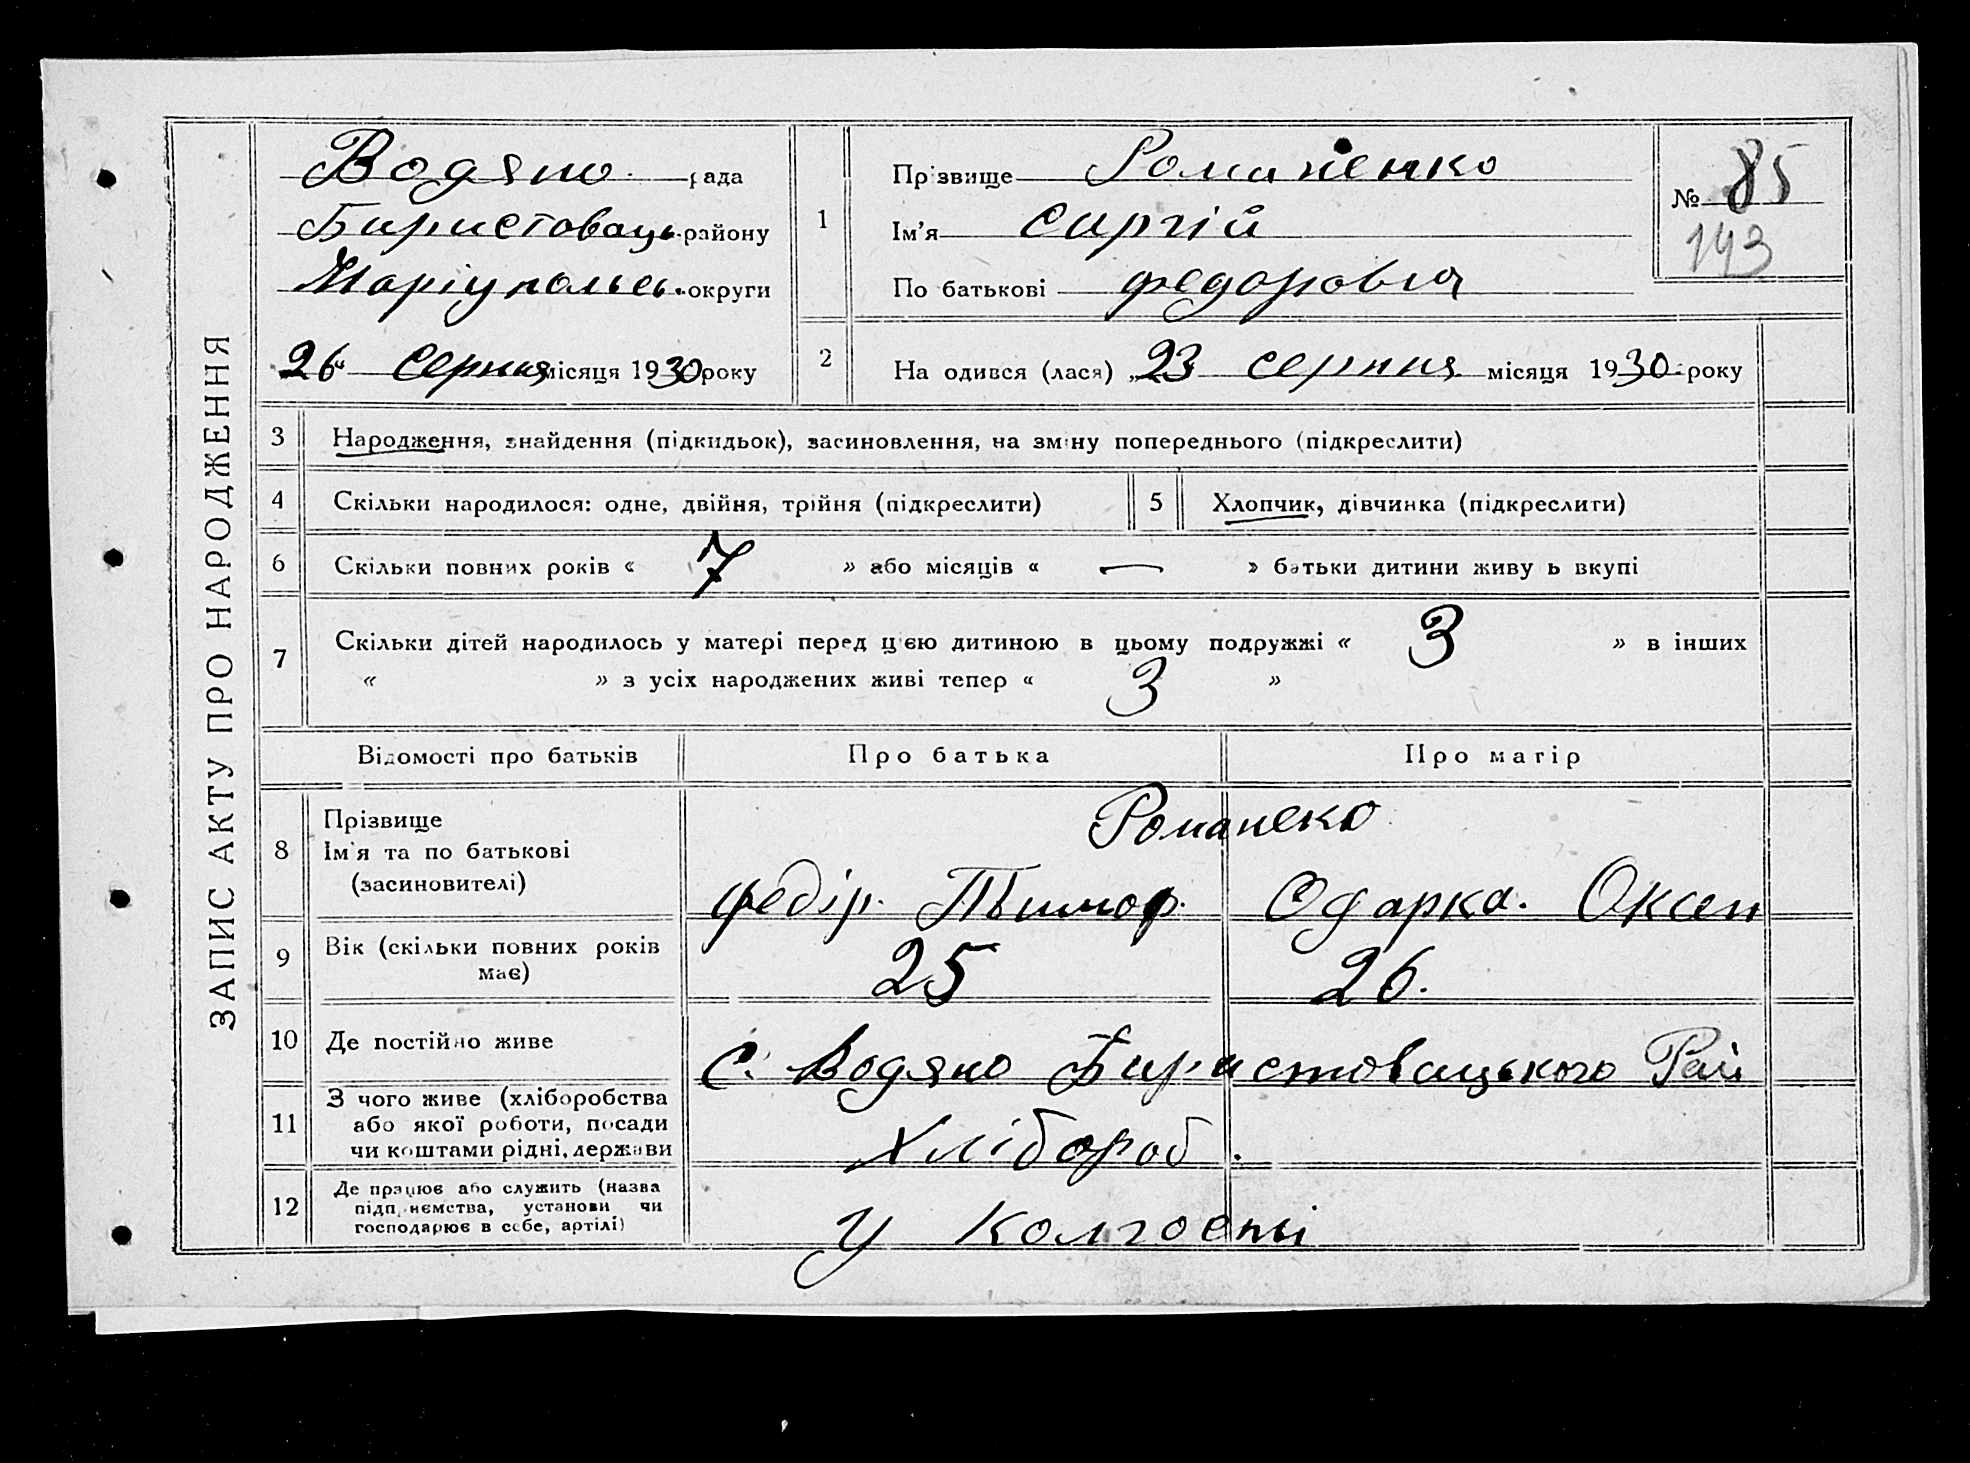 ЗАПИС АКТУ ПРО НАРОДЖЕННЯ
Водяно рада
Биристоваць. району
Маріупольсь. округи
26 серпня місяця 1930 року
1
Прізвище Романенко
Ім'я Сиргій
По батькові федорович
№ 85
143
2
На одився (лася) „23 серпня місяця 1930 року
3 Народження, знайдення (підкидьок), засиновлення, на зміну попереднього (підкреслити)
4 Скільки народилося: одне, двійня, трійня (підкреслити) 5 Хлопчик, дівчинка (підкреслити)
6 Скільки повних років « 7 » або місяців « — » батьки дитини живу ь вкупі
7 Скільки дітей народилось у матері перед цією дитиною в цьому подружжі « 3 » в інших
« » з усіх народжених живі тепер « 3 »
Відомості про батьків Про батька Про матір
8 Прізвище
Ім'я та по батькові
(засиновителі)
Романеко
федір. Тьимоф. Одарка. Оксен
9 Вік (скільки повних років
має)
25 26.
10 Де постійно живе С. Водяно Биристовацького Рай
11 З чого живе (хліборобства
або якої роботи, посади
чи коштами рідні, держави
Хлібороб.
12 Де працює або служить (назва
підп.иємства, установи чи
господарює в себе, артілі)
у колгоспі